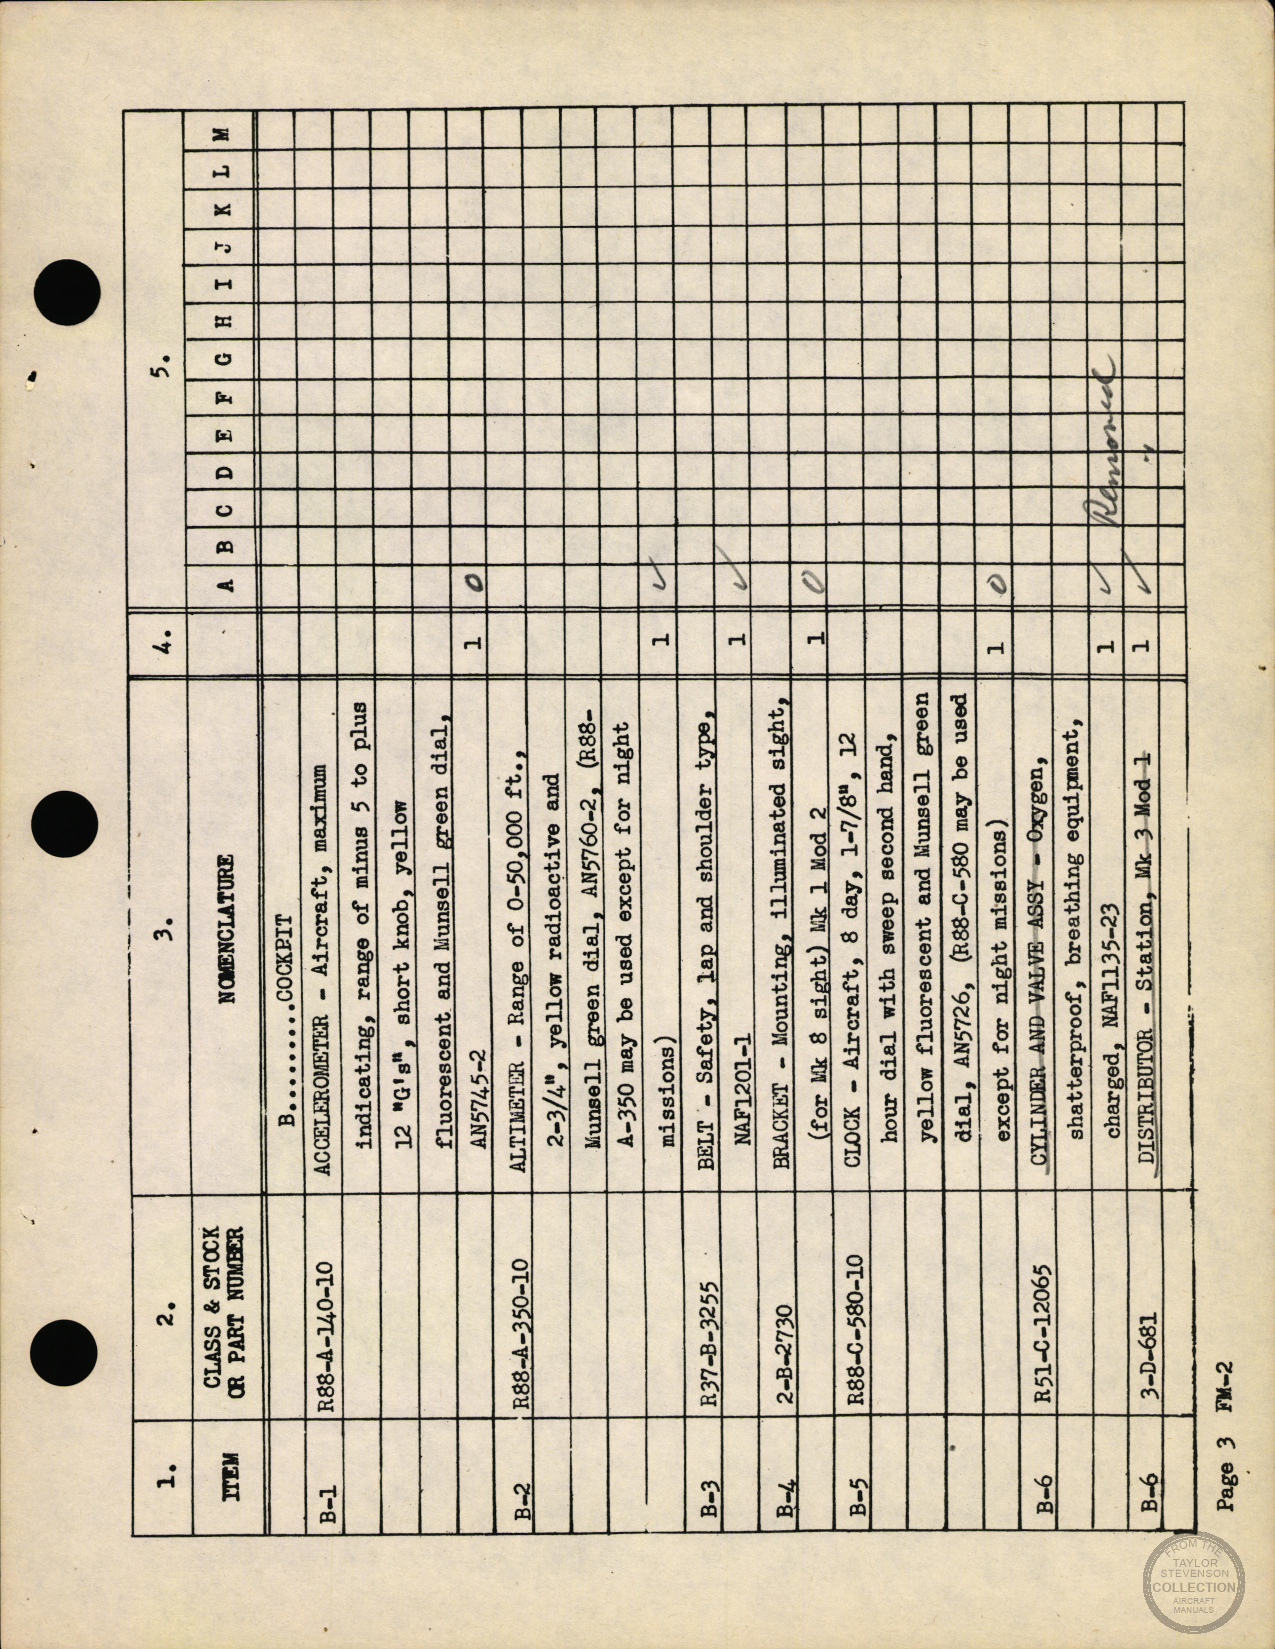 1. 2. 3. 4. 5.
ITEM CLASS & STOCK OR PART NUMBER NOMENCLATURE A B C D E F G H I J K L M
B..........COCKPIT
B-1 R88-A-140-10 ACCELEROMETER - Aircraft, maximum
indicating, range of minus 5 to plus
12 "G's", short knob, yellow
fluorescent and Munsell green dial,
AN5745-2 1 0
B-2 R88-A-350-10 ALTIMETER - Range of 0-50,000 ft.,
2-3/4", yellow radioactive and
Munsell green dial, AN5760-2, (R88-
A-350 may be used except for night
missions) 1 ✓
B-3 R37-B-3255 BELT - Safety, lap and shoulder type,
NAF1201-1 1 ✓
B-4 2-B-2730 BRACKET - Mounting, illuminated sight,
(for Mk 8 sight) Mk 1 Mod 2 1 0
B-5 R88-C-580-10 CLOCK - Aircraft, 8 day, 1-7/8", 12
hour dial with sweep second hand,
yellow fluorescent and Munsell green
dial, AN5726, (R88-C-580 may be used
except for night missions) 1 0
B-6 R51-C-12065 CYLINDER AND VALVE ASSY - Oxygen,
shatterproof, breathing equipment,
charged, NAF1135-23 1 ✓ Removed
B-6 3-D-681 DISTRIBUTOR - Station, Mk 3 Mod 1 1 ✓ "
Page 3 FM-2
FROM THE
TAYLOR
STEVENSON
COLLECTION
AIRCRAFT
MANUALS